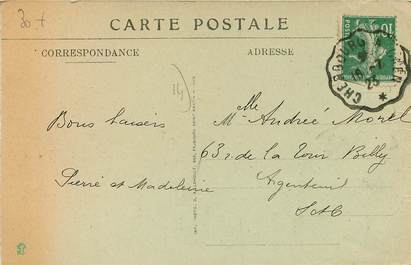 30 f
CARTE POSTALE
CORRESPONDANCE
ADRESSE
10
CHERBOURG
25
14
Bons baisers
Pierre et Madeleine
Mlle Andrée Morel
63 r. de la Tour Billy
Argenteuil
S et O